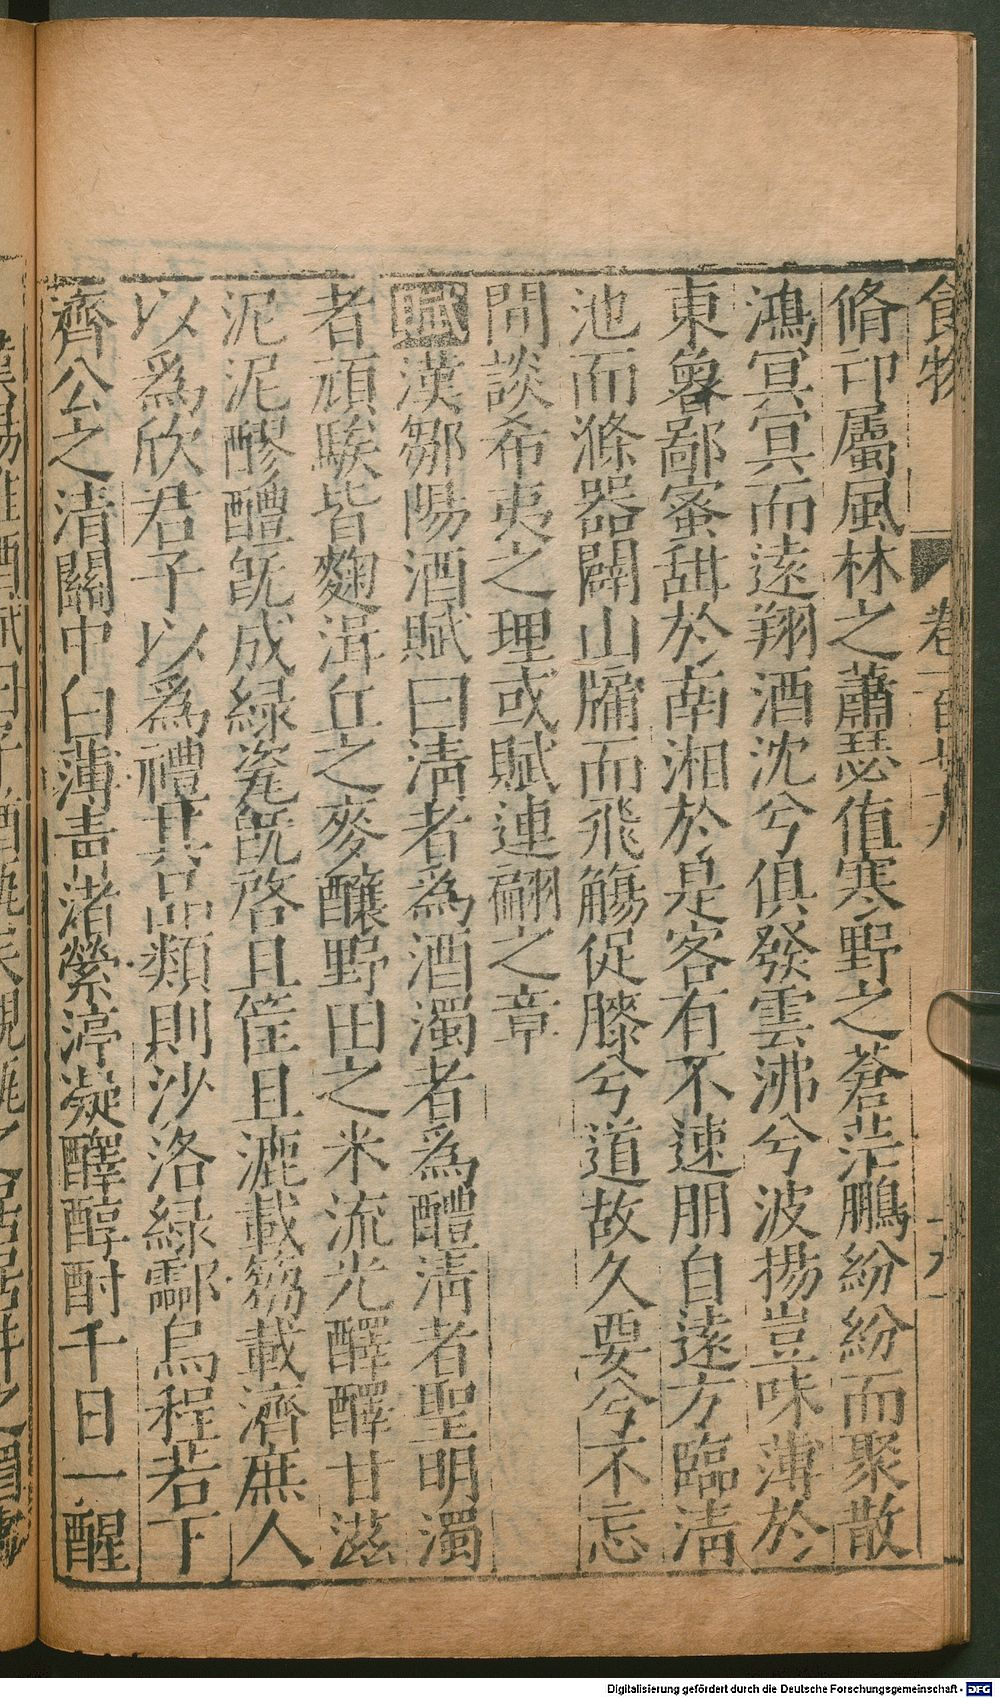 食物 卷一百廿九
脩卬屬風林之蕭瑟值寒野之蒼茫鵬紛紛而聚散
鴻冥冥而遠翔酒沈兮俱發雲沸兮波揚豈味薄於
東魯鄙蜜甜於南湘於是客有不速朋自遠方臨清
池而滌器闢山牖而飛觴促膝兮道故久要兮不忘
間談希夷之理或賦連翩之章
賦漢鄒陽酒賦曰清者爲酒濁者爲醴清者聖明濁
者頑騃皆麴湒丘之麥釀野田之米流光醳醳甘滋
泥泥醪醴旣成緑瓷旣啓且筐且漉載䈰載濟庶人
以爲欣君子以爲禮其品類則沙洛緑酃烏程若下
齊公之清關中白薄青渚縈渟凝醳醇酎千日一醒